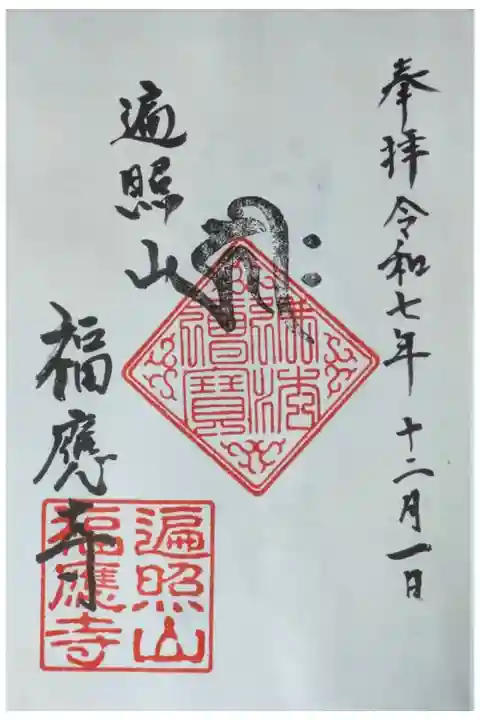 奉拝 令和七年 十二月一日
遍照山
福應寺
佛法僧寳
遍照山
福應寺